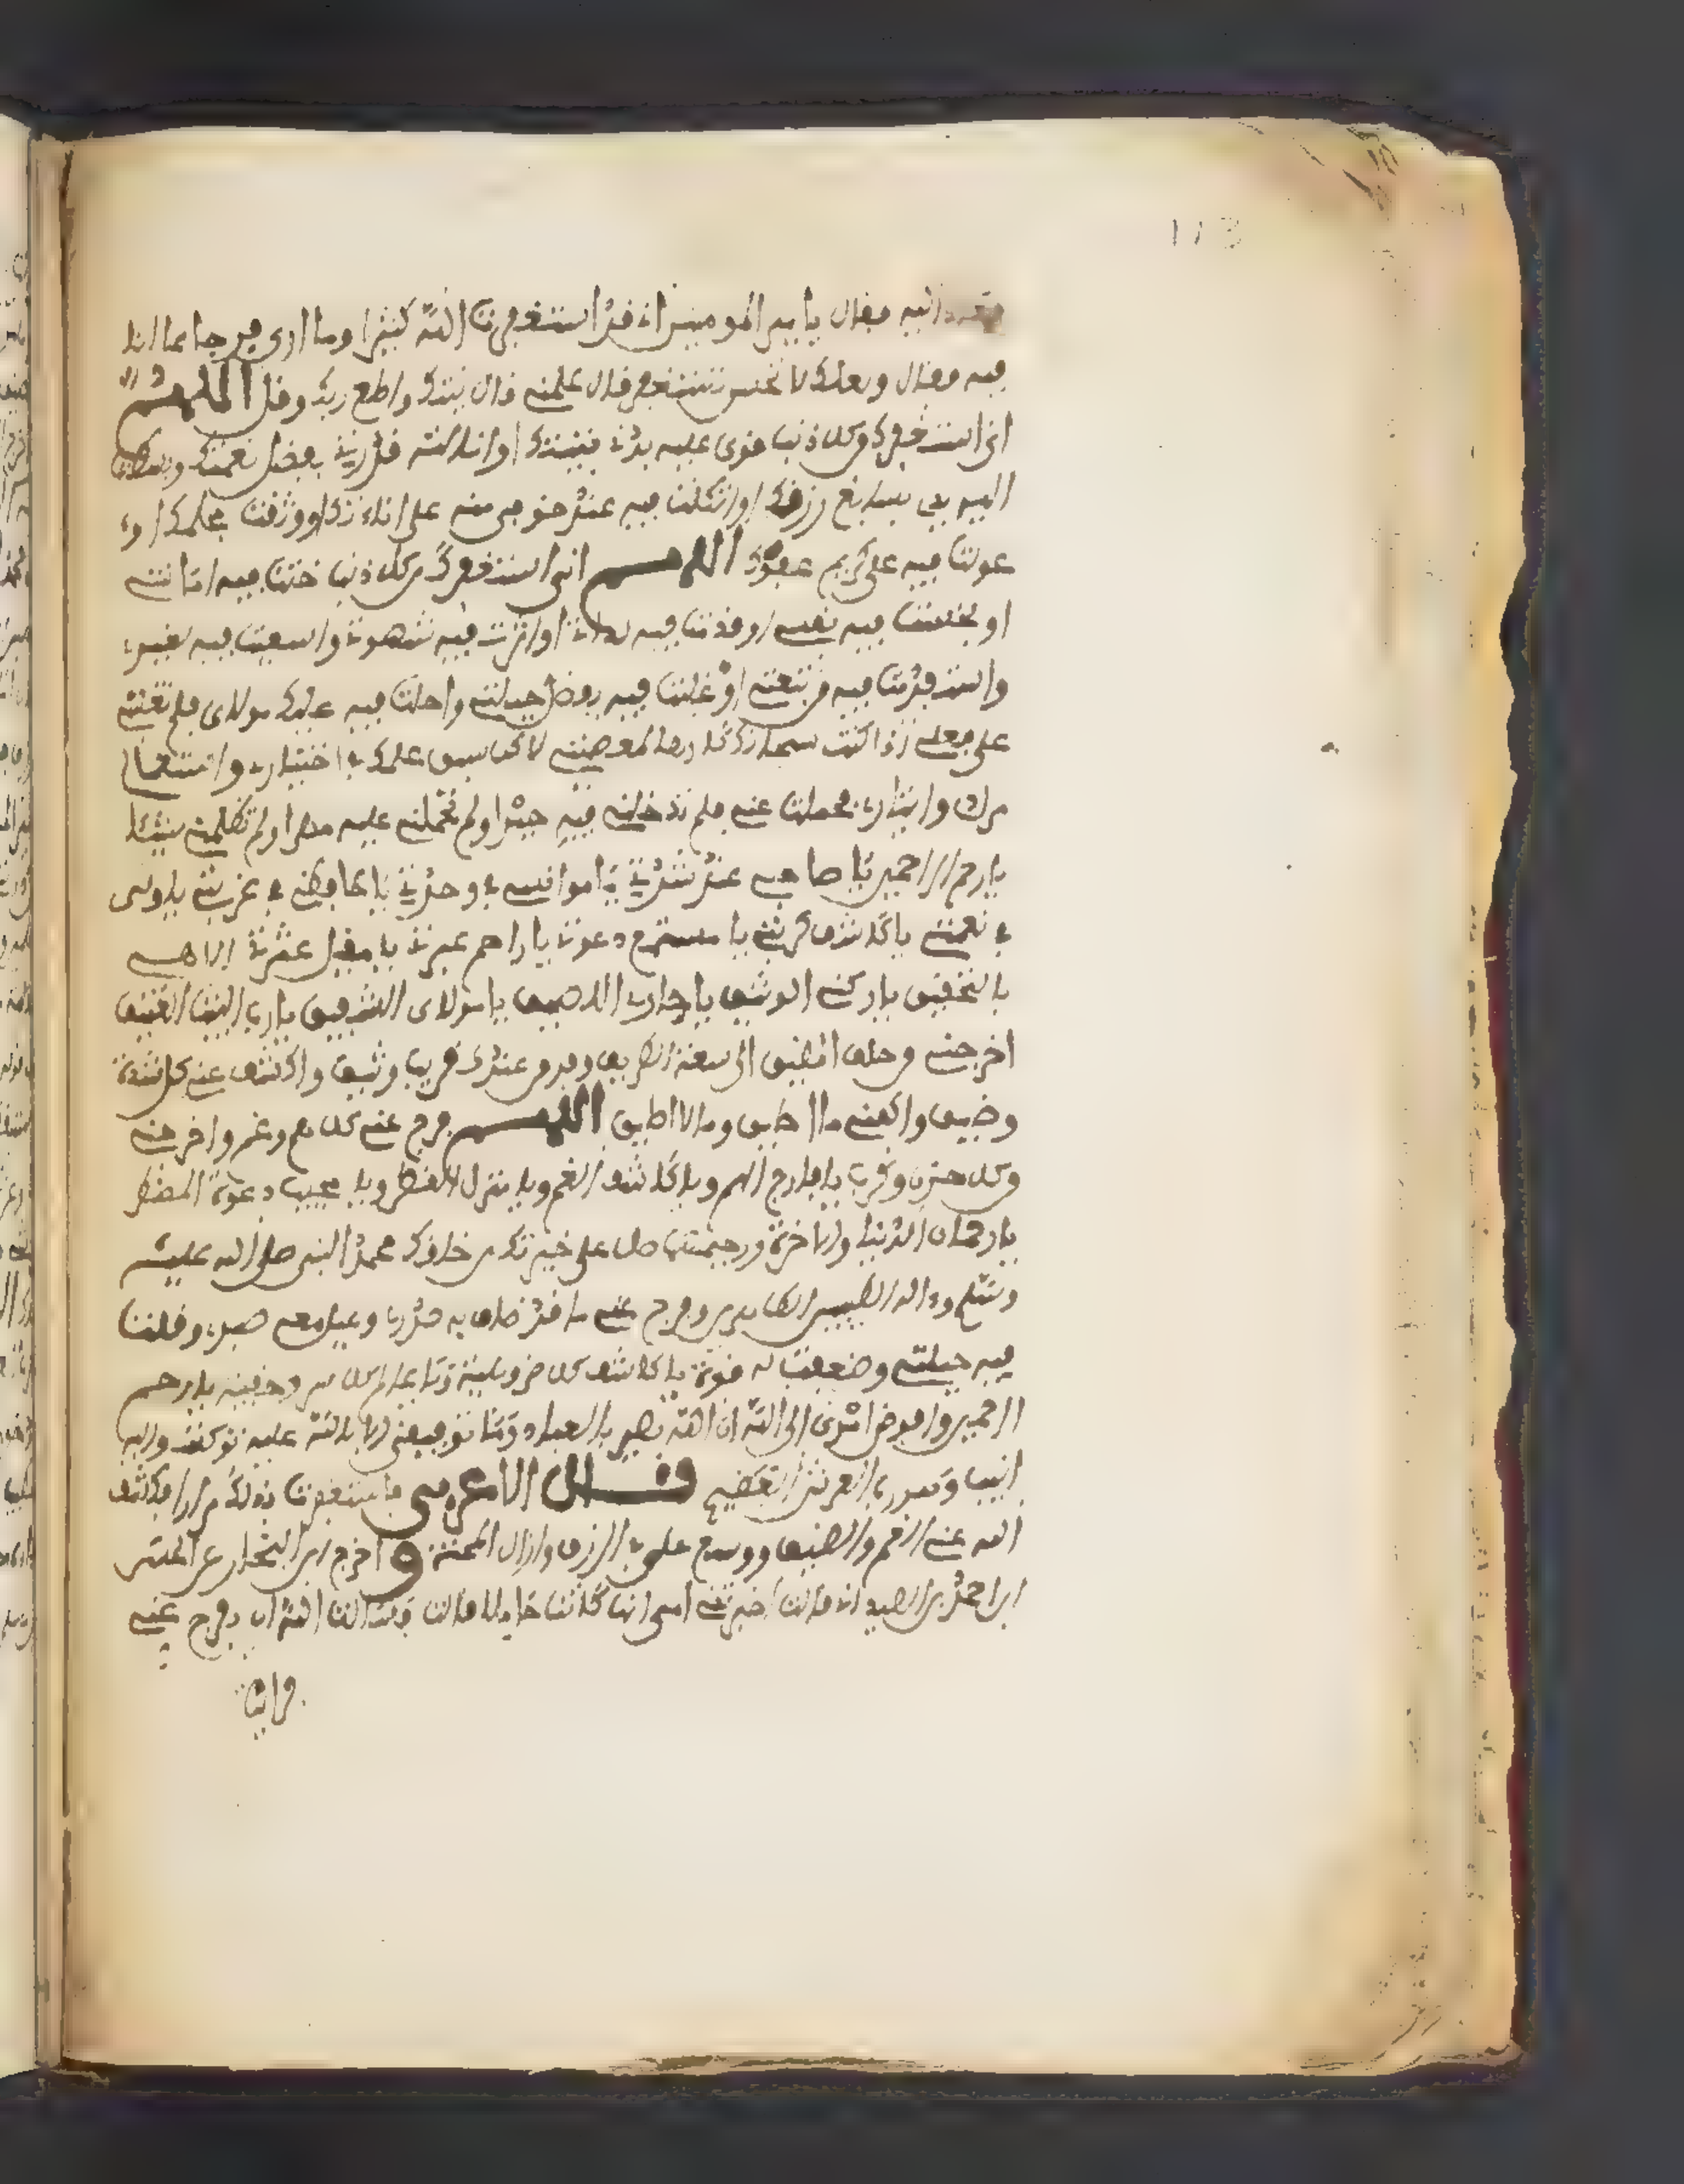 فعاد اليه فقال يا امير المومنين اني قد استغفرت الله كثيرا وما ارى فرجا مما انا
فيه فقال ويحك لا تحسن تستغفر قال علمني قال نيتك واطع ربك وقل اللهم
اني استغفرك من كل ذنب قوى عليه بدني بنيتك او نالته قدرتي بفضل نعمتك وبسطت
اليه يدي بسابغ رزقك او اتكلت فيه عند خوفي منه على اناتك ووثقت بحلمك او
عولت فيه على كريم عفوك اللهم اني استغفرك من كل ذنب خنت فيه امانتي
او بخست فيه نفسي او قدمت فيه لذاتي او اثرت فيه شهوتي واسعيت فيه لغيري
واستغويت فيه من تبعني او غلبت فيه بفضل حيلتي واحلت فيه عليك مولاي فلم تغلبني
على فعلي اذا كنت سبحانك كارها لمعصيتي لاكن سبق علمك في اختياري واستعمال
مرادي وايثاري فحملت عني فلم تدخلني فيه جبرا ولم تحملني عليه قهرا ولم تظلمني شيئا
يا ارحم الراحمين يا صاحبي عند شدتي يا موانسي في وحدتي يا حافظي في غربتي يا وليي
في نعمتي يا كاشف كربتي يا مستمع دعوتي يا راحم عبرتي يا مقيل عثرتي الاهي
بالتحقيق يا ركني الوثيق يا جاري اللصيق يا مولاي الشفيق يا رب البيت العتيق
اخرجني من حلق المضيق الى سعة الطريق وفرج من عندك قريب وثيق واكشف عني كل شدة
وضيق واكفني ما اطيق وما لا اطيق اللهم فرج عني كل هم وغم واخرجني
من كل حزن وكرب يا فارج الهم ويا كاشف الغم ويا منزل القطر ويا مجيب دعوة المضطر
يا رحمان الدنيا والاخرة ورحيمهما صل على خيرتك من خلقك محمد النبي صلى الله عليه
وسلم وءاله الطيبين الطاهرين وفرج عني ما قد ضاق به صدري وعيل معه صبري وقلت
فيه حيلتي وضعفت له قوتي يا كاشف كل ضر وبلية ويا عالم كل سر وخفية يا ارحم
الراحمين وافوض امري الى الله ان الله بصير بالعباد وما توفيقي الا بالله عليه توكلت واليه
انيب وهو رب العرش العظيم قال الاعرابي فاستغفرت بذلك مرارا فكشف
الله عني الغم والضيق ووسع علي في الرزق وازال المحنة واخرج ابن النجار عن الحسن
ابن احمد بن الصيد اني قالت اخبرتني امي انها كانت حاملا قالت فسالت الله ان يفرج عني
فرايت